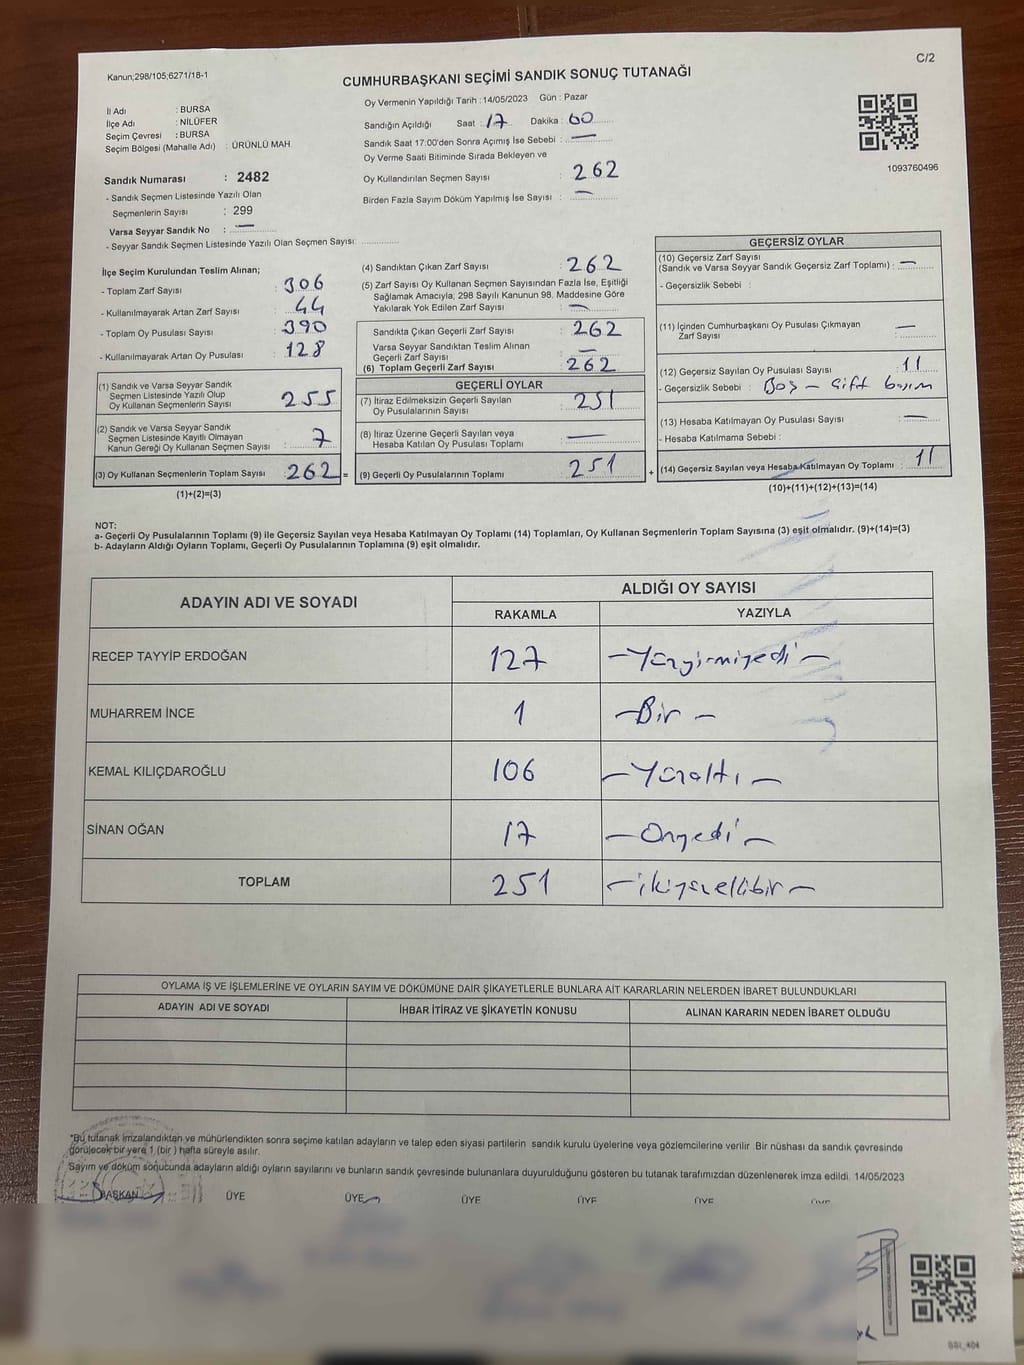 C/2
Kanun;298/105;6271/18-1
CUMHURBAŞKANI SEÇİMİ SANDIK SONUÇ TUTANAĞI
İl Adı : BURSA
İlçe Adı : NİLÜFER
Seçim Çevresi : BURSA
Seçim Bölgesi (Mahalle Adı) : ÜRÜNLÜ MAH.
Sandık Numarası : 2482
- Sandık Seçmen Listesinde Yazılı Olan
Seçmenlerin Sayısı : 299
Varsa Seyyar Sandık No : —
- Seyyar Sandık Seçmen Listesinde Yazılı Olan Seçmen Sayısı: ..............
Oy Vermenin Yapıldığı Tarih : 14/05/2023 Gün : Pazar
Sandığın Açıldığı Saat : 17 Dakika : 00
Sandık Saat 17:00'den Sonra Açımış İse Sebebi : —
Oy Verme Saati Bitiminde Sırada Bekleyen ve
Oy Kullandırılan Seçmen Sayısı : 262
Birden Fazla Sayım Döküm Yapılmış İse Sayısı : —
1093760496
İlçe Seçim Kurulundan Teslim Alınan;
- Toplam Zarf Sayısı : 306
- Kullanılmayarak Artan Zarf Sayısı : 44
- Toplam Oy Pusulası Sayısı : 390
- Kullanılmayarak Artan Oy Pusulası : 128
(1) Sandık ve Varsa Seyyar Sandık
Seçmen Listesinde Yazılı Olup
Oy Kullanan Seçmenlerin Sayısı : 255
(2) Sandık ve Varsa Seyyar Sandık
Seçmen Listesinde Kayıtlı Olmayan
Kanun Gereği Oy Kullanan Seçmen Sayısı : 7
(3) Oy Kullanan Seçmenlerin Toplam Sayısı : 262 =
(1)+(2)=(3)
(4) Sandıktan Çıkan Zarf Sayısı : 262
(5) Zarf Sayısı Oy Kullanan Seçmen Sayısından Fazla İse, Eşitliği
Sağlamak Amacıyla, 298 Sayılı Kanunun 98. Maddesine Göre
Yakılarak Yok Edilen Zarf Sayısı : —
Sandıkta Çıkan Geçerli Zarf Sayısı : 262
Varsa Seyyar Sandıktan Teslim Alınan
Geçerli Zarf Sayısı : —
(6) Toplam Geçerli Zarf Sayısı : 262
GEÇERLİ OYLAR
(7) İtiraz Edilmeksizin Geçerli Sayılan
Oy Pusulalarının Sayısı : 251
(8) İtiraz Üzerine Geçerli Sayılan veya
Hesaba Katılan Oy Pusulası Toplamı : —
(9) Geçerli Oy Pusulalarının Toplamı : 251 +
GEÇERSİZ OYLAR
(10) Geçersiz Zarf Sayısı
(Sandık ve Varsa Seyyar Sandık Geçersiz Zarf Toplamı) : —
- Geçersizlik Sebebi :
(11) İçinden Cumhurbaşkanı Oy Pusulası Çıkmayan
Zarf Sayısı : —
(12) Geçersiz Sayılan Oy Pusulası Sayısı : 11
- Geçersizlik Sebebi : Boş — Çift basım
(13) Hesaba Katılmayan Oy Pusulası Sayısı : —
- Hesaba Katılmama Sebebi :
(14) Geçersiz Sayılan veya Hesaba Katılmayan Oy Toplamı : 11
(10)+(11)+(12)+(13)=(14)
NOT:
a- Geçerli Oy Pusulalarının Toplamı (9) ile Geçersiz Sayılan veya Hesaba Katılmayan Oy Toplamı (14) Toplamları, Oy Kullanan Seçmenlerin Toplam Sayısına (3) eşit olmalıdır. (9)+(14)=(3)
b- Adayların Aldığı Oyların Toplamı, Geçerli Oy Pusulalarının Toplamına (9) eşit olmalıdır.
ADAYIN ADI VE SOYADI ALDIĞI OY SAYISI
RAKAMLA YAZIYLA
RECEP TAYYİP ERDOĞAN 127 — Yüzyirmiyedi —
MUHARREM İNCE 1 — Bir —
KEMAL KILIÇDAROĞLU 106 — Yüzaltı —
SİNAN OĞAN 17 — Onyedi —
TOPLAM 251 — ikiyüzellibir —
OYLAMA İŞ VE İŞLEMLERİNE VE OYLARIN SAYIM VE DÖKÜMÜNE DAİR ŞİKAYETLERLE BUNLARA AİT KARARLARIN NELERDEN İBARET BULUNDUKLARI
ADAYIN ADI VE SOYADI İHBAR İTİRAZ VE ŞİKAYETİN KONUSU ALINAN KARARIN NEDEN İBARET OLDUĞU
"Bu tutanak imzalandıktan ve mühürlendikten sonra seçime katılan adayların ve talep eden siyasi partilerin sandık kurulu üyelerine veya gözlemcilerine verilir. Bir nüshası da sandık çevresinde
görülecek bir yere 1 (bir ) hafta süreyle asılır.
Sayım ve döküm sonucunda adayların aldığı oyların sayılarını ve bunların sandık çevresinde bulunanlara duyurulduğunu gösteren bu tutanak tarafımızdan düzenlenerek imza edildi. 14/05/2023
BAŞKAN ÜYE ÜYE ÜYE ÜYE ÜYE ÜYE